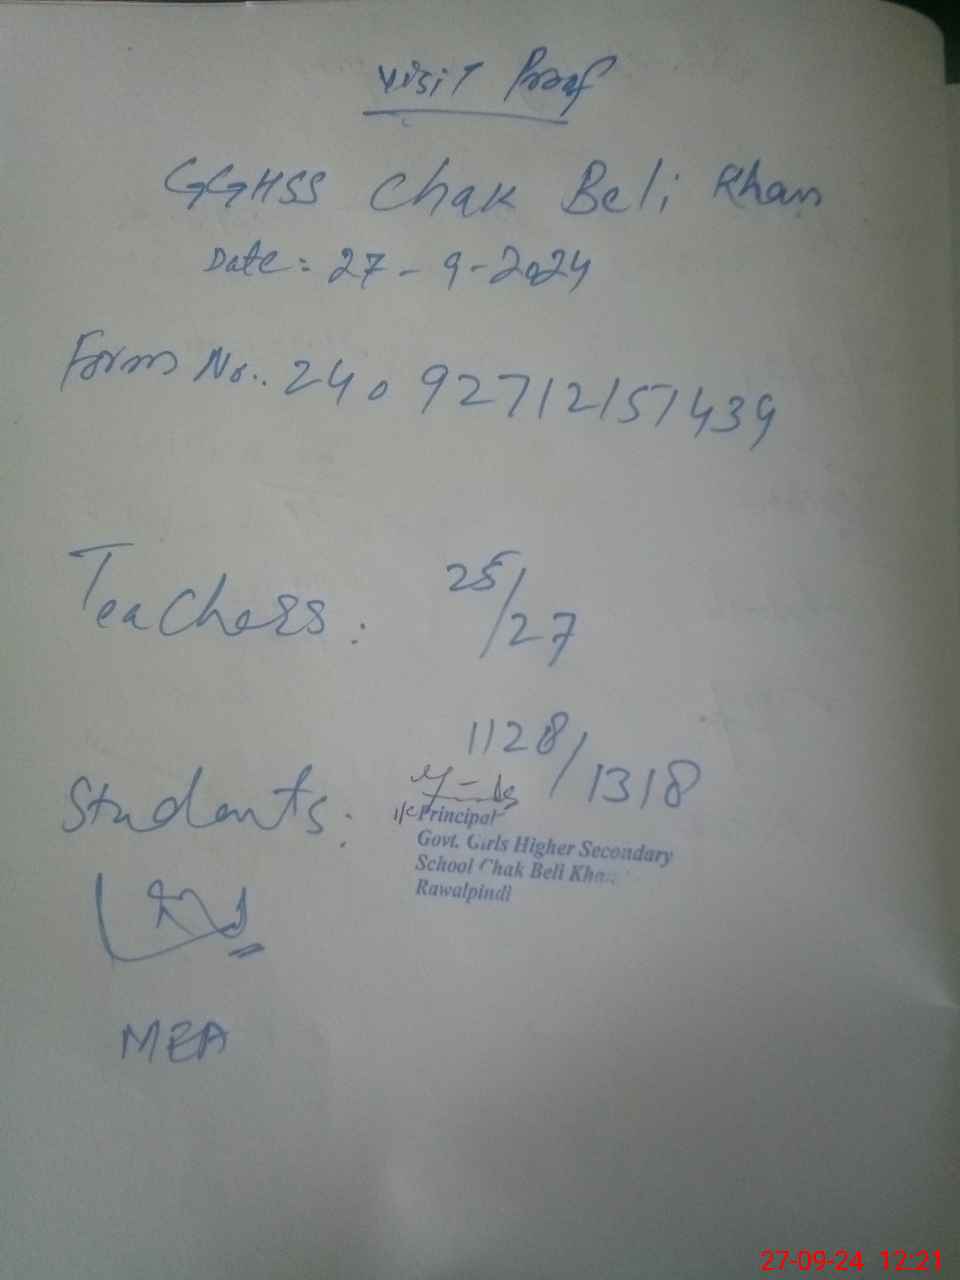 Visit Proof
GGHSS Chak Beli Khan
Date = 27-9-2024
Form No.. 240927121571439
Teachers: 25/27
Students: 1128/1318
I/C Principal
Govt. Girls Higher Secondary
School Chak Beli Khan
Rawalpindi
MEA
27-09-24 12:21